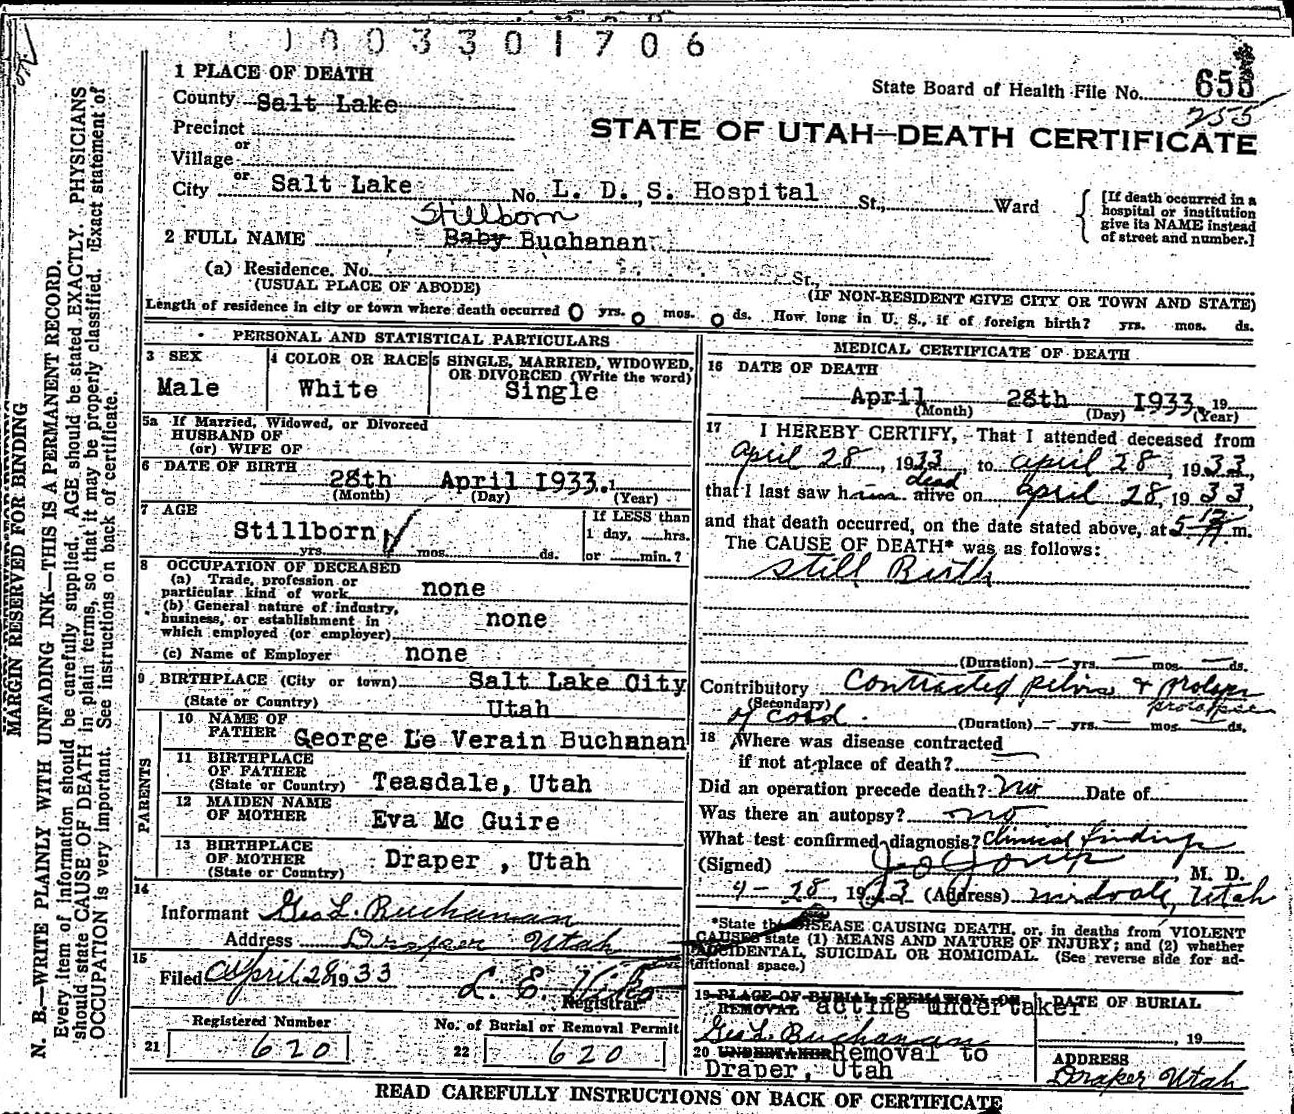 1003301706
1 PLACE OF DEATH
State Board of Health File No. 658
255
County Salt Lake
Precinct
or
Village
or
City Salt Lake No. L. D. S. Hospital St., Ward
[If death occurred in a hospital or institution give its NAME instead of street and number.]
STATE OF UTAH—DEATH CERTIFICATE
Stillborn
2 FULL NAME Baby Buchanan
(a) Residence. No. St.,
(USUAL PLACE OF ABODE) (IF NON-RESIDENT GIVE CITY OR TOWN AND STATE)
Length of residence in city or town where death occurred 0 yrs. 0 mos. 0 ds. How long in U. S., if of foreign birth? yrs. mos. ds.
PERSONAL AND STATISTICAL PARTICULARS
3 SEX
Male
4 COLOR OR RACE
White
5 SINGLE, MARRIED, WIDOWED, OR DIVORCED (Write the word)
Single
5a If Married, Widowed, or Divorced
HUSBAND OF
(or) WIFE OF
6 DATE OF BIRTH
28th April 1933.
(Month) (Day) (Year)
7 AGE
Stillborn
yrs. mos. ds.
If LESS than
1 day, hrs.
or min.?
8 OCCUPATION OF DECEASED
(a) Trade, profession or
particular kind of work none
(b) General nature of industry,
business, or establishment in
which employed (or employer) none
(c) Name of Employer none
9 BIRTHPLACE (City or town) Salt Lake City
(State or Country) Utah
PARENTS
10 NAME OF
FATHER George Le Verain Buchanan
11 BIRTHPLACE
OF FATHER
(State or Country) Teasdale, Utah
12 MAIDEN NAME
OF MOTHER Eva Mc Guire
13 BIRTHPLACE
OF MOTHER
(State or Country) Draper , Utah
14
Informant Geo L. Buchanan
Address Draper Utah
15
Filed April 28 1933 L. E.
Registrar
Registered Number
21 620
No. of Burial or Removal Permit
22 620
MEDICAL CERTIFICATE OF DEATH
16 DATE OF DEATH
April 28th 1933. 19
(Month) (Day) (Year)
17 I HEREBY CERTIFY, That I attended deceased from
April 28, 1933, to April 28, 1933
dead
that I last saw him alive on April 28, 1933
and that death occurred, on the date stated above, at m.
The CAUSE OF DEATH* was as follows:
Still Birth
(Duration) yrs. mos. ds.
Contributory Contracted pelvis & prolapse
(Secondary) prolapse
of cord. (Duration) yrs. mos. ds.
18 Where was disease contracted
if not at place of death?
Did an operation precede death? no Date of
Was there an autopsy? no
What test confirmed diagnosis? Clinical findings
(Signed) J. O. Jones, M. D.
4-28, 1933 (Address) Midvale, Utah
*State the DISEASE CAUSING DEATH, or, in deaths from VIOLENT
CAUSES state (1) MEANS AND NATURE OF INJURY; and (2) whether
ACCIDENTAL, SUICIDAL OR HOMICIDAL. (See reverse side for ad-
ditional space.)
19 PLACE OF BURIAL, CREMATION, OR
REMOVAL acting undertaker
DATE OF BURIAL
Geo L. Buchanan , 19
20 UNDERTAKER Removal to
Draper, Utah
ADDRESS
Draper Utah
READ CAREFULLY INSTRUCTIONS ON BACK OF CERTIFICATE
MARGIN RESERVED FOR BINDING
N. B.—WRITE PLAINLY WITH UNFADING INK—THIS IS A PERMANENT RECORD.
Every item of information should be carefully supplied. AGE should be stated EXACTLY. PHYSICIANS
should state CAUSE OF DEATH in plain terms, so that it may be properly classified. Exact statement of
OCCUPATION is very important. See instructions on back of certificate.